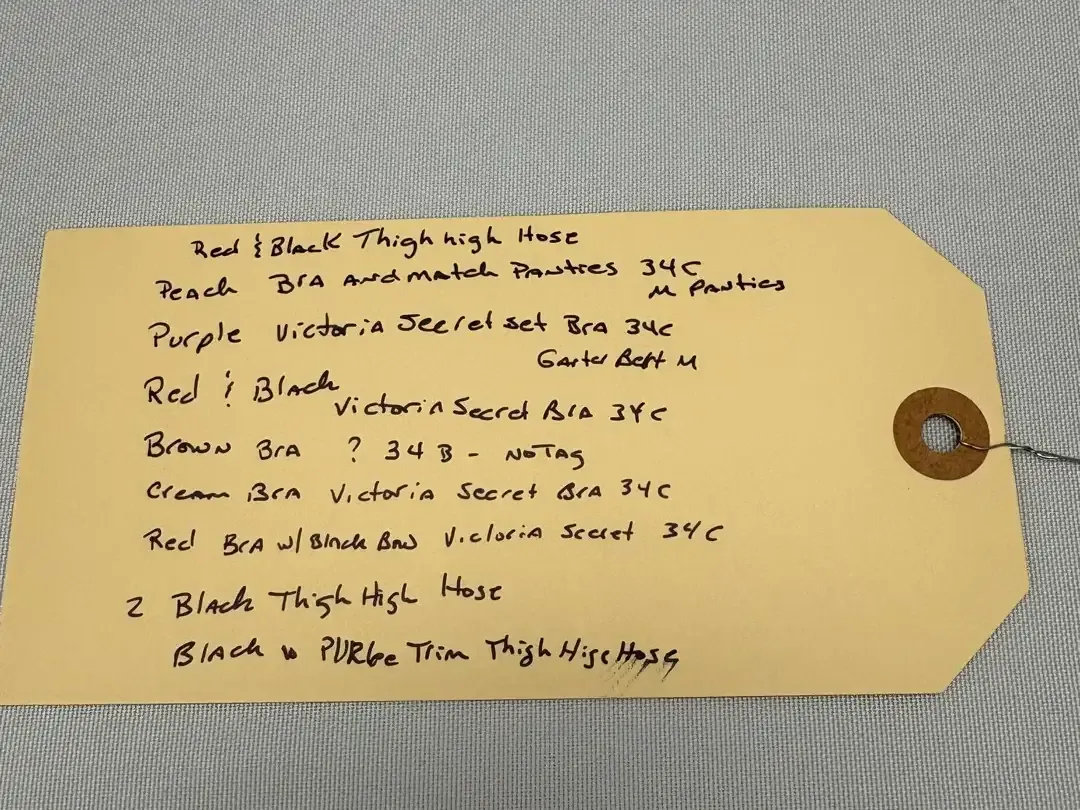 Red & Black Thigh high Hose
Peach Bra and match Panties 34C
M Panties
Purple Victoria Secret set Bra 34C
Garter Belt M
Red & Black
Victoria Secret Bra 34C
Brown Bra ? 34 B - No Tag
Cream Bra Victoria Secret Bra 34C
Red Bra w/ Black Bow Victoria Secret 34C
2 Black Thigh High Hose
Black w PURPLE Trim Thigh High Hose